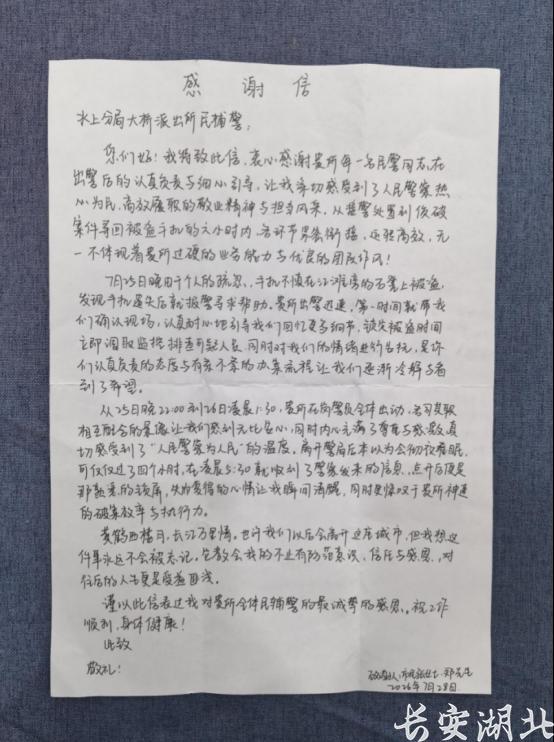 感谢信
水上分局大桥派出所民辅警：
您们好！我特致此信，衷心感谢贵所每一名民警同志，在
出警后的认真负责与细心引导，让我亲切感受到了人民警察热
心为民、高效履职的敬业精神与担当风采，从接警处置到侦破
案件寻回被盗手机的六小时内，各环节紧密衔接，迅驰高效，无
一不体现着贵所过硬的业务能力与优良的团队作风！
7月25日晚由于个人的疏忽，手机不慎在江滩旁的石凳上被盗，
发现手机遗失后就报警寻求帮助。贵所出警迅速，第一时间就带我
们确认现场，认真耐心地引导我们回忆更多细节，锁定被盗时间
立即调取监控排查可疑人员，同时对我们的情绪进行安抚，是你
们认真负责的态度与有条不紊的办案流程让我们逐渐冷静与看
到了希望。
从25日晚22:00到26日凌晨1:30，贵所在岗警员全体出动，各司其职
相互配合的景像让我们感到无比安心，同时内心充满了尊重与感激，真
切感受到了“人民警察为人民”的温度。离开警局后本以为会彻夜难眠，
可仅仅过了四个小时，在凌晨5:30就收到了警察发来的信息，点开后便是
那熟悉的锁屏，失而复得的心情让我瞬间清醒，同时更惊叹于贵所神速
的破案效率与执行力。
黄鹤西楼月，长江万里情。也许我们以后会离开这座城市，但我想这
件事永远不会被忘记，它教会我的不止有防范意识、信任与感恩，对
往后的人生更是受益匪浅。
谨以此信表达我对贵所全体民辅警的最诚挚的感恩。祝工作
顺利，身体健康！
此致
敬礼！
致谢人：市民张女士、郑先生
2026年7月28日
长安湖北